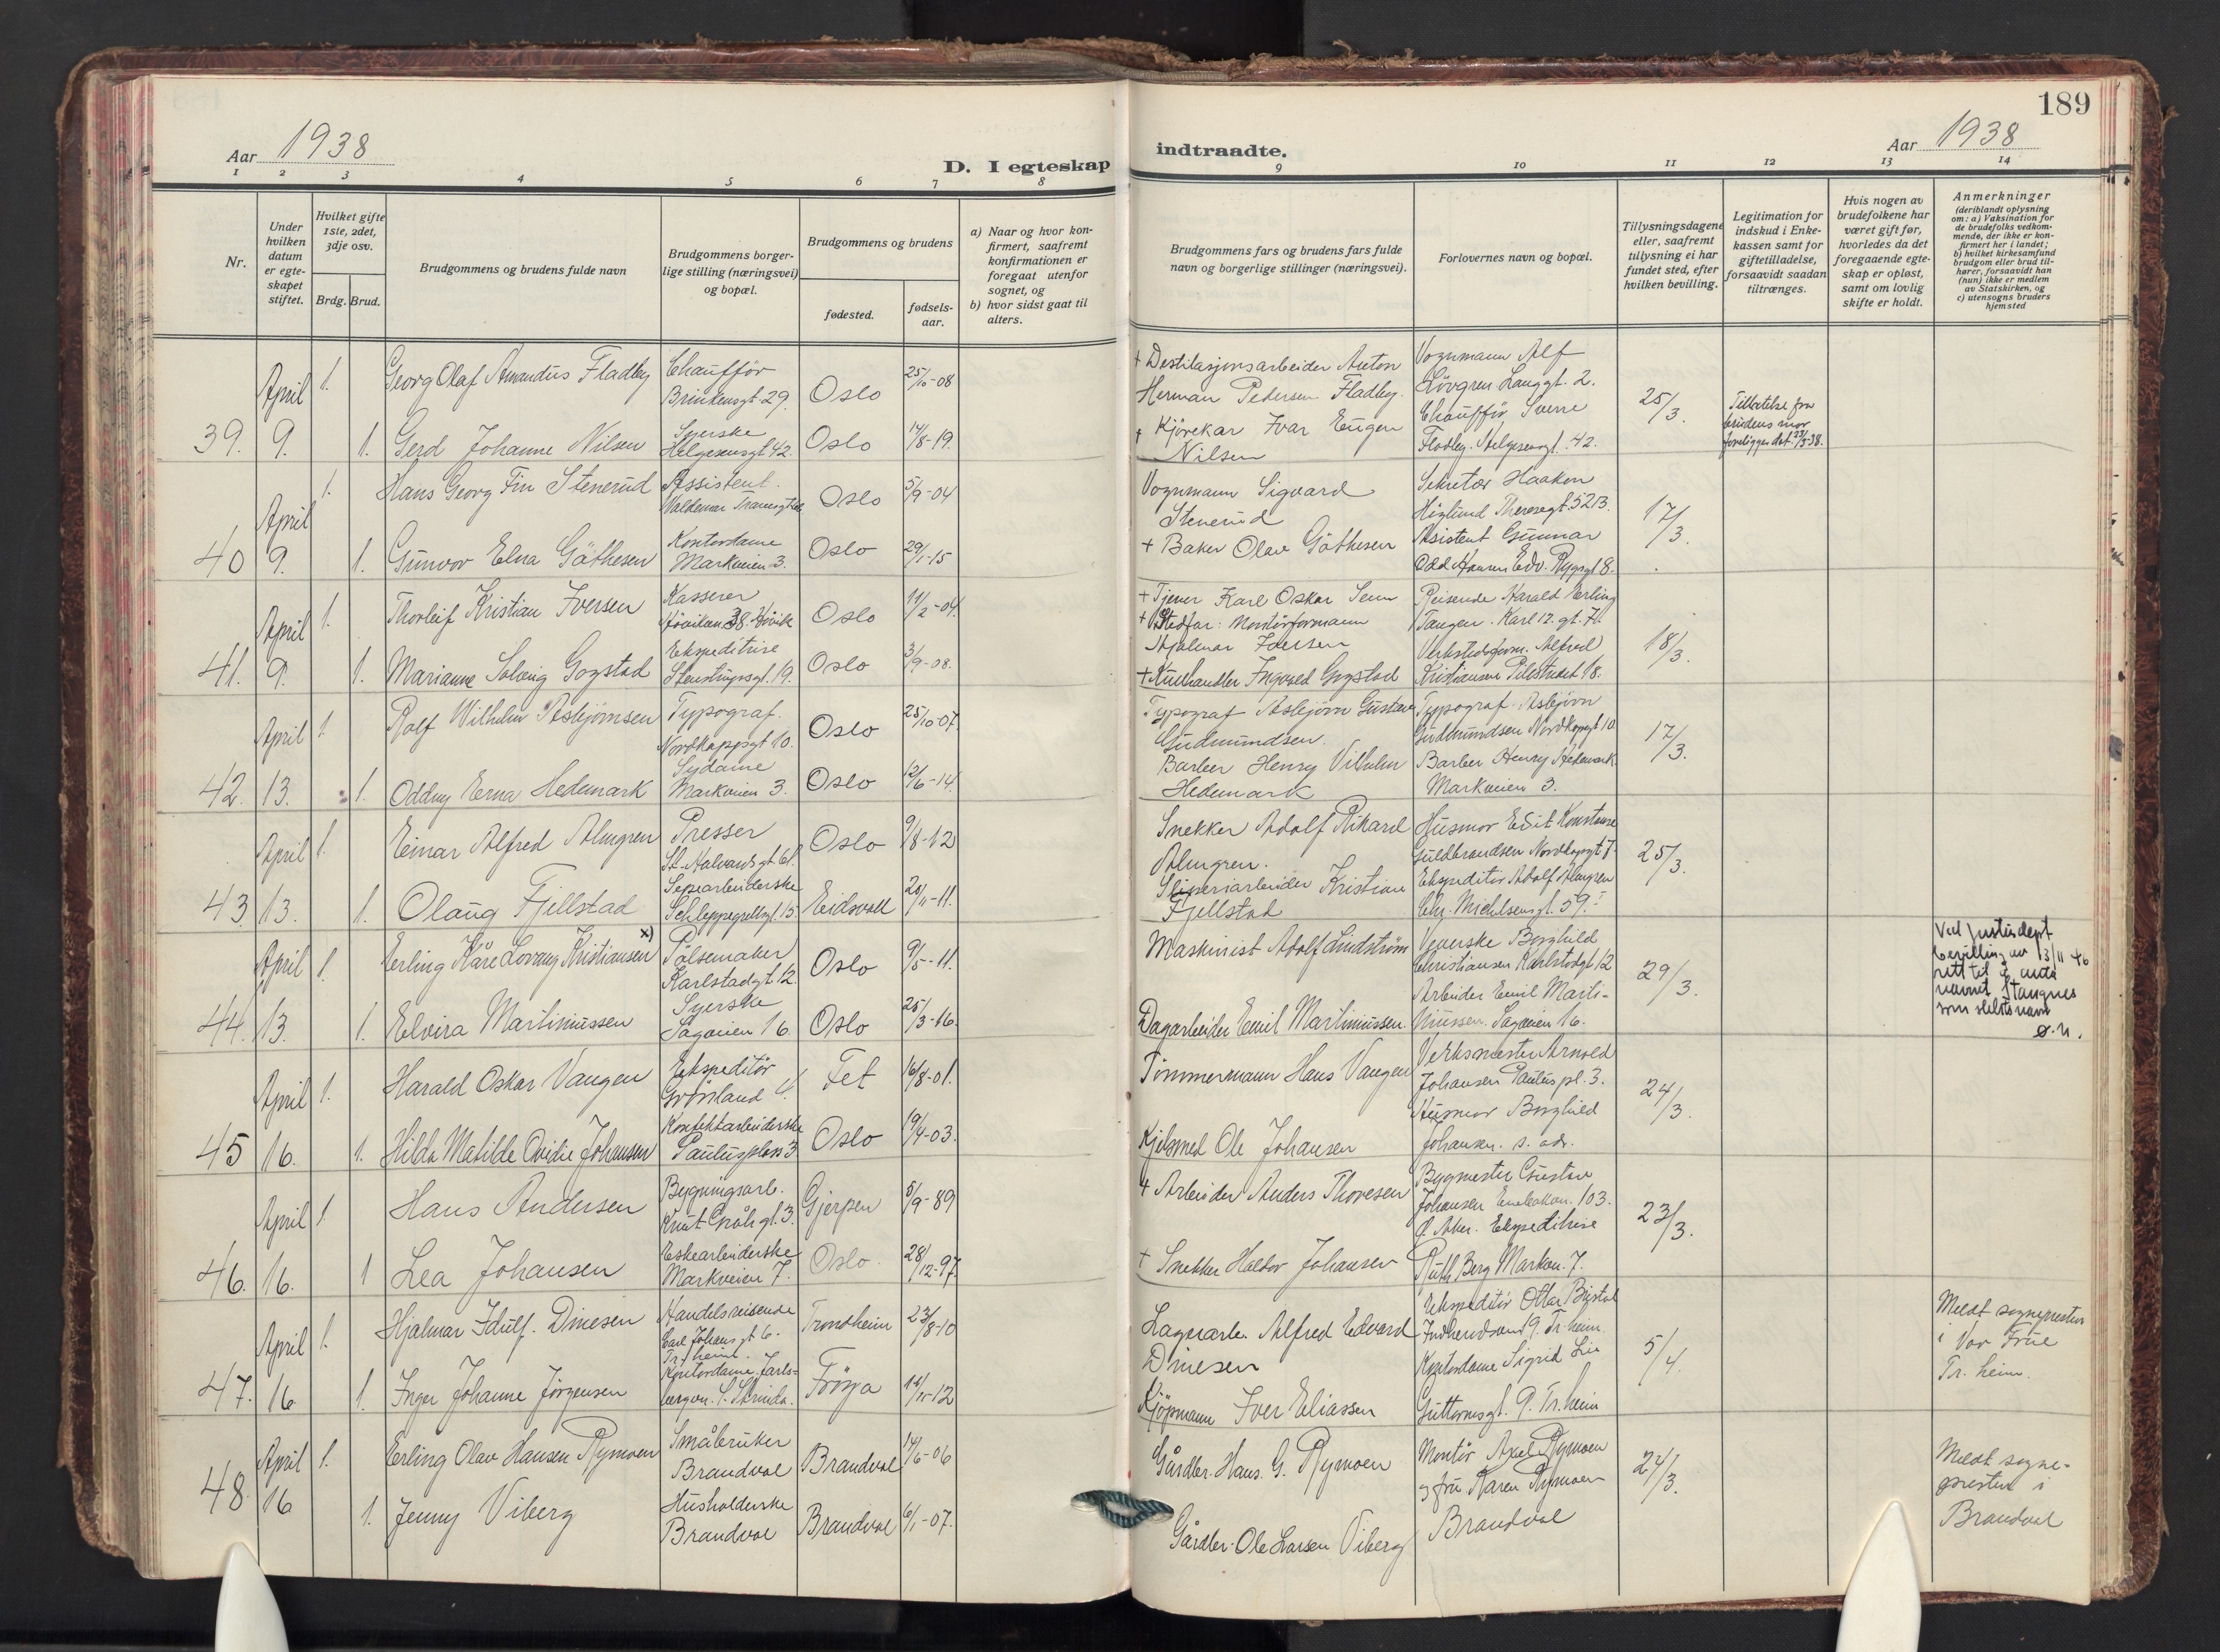 189
Aar 1938
D. I egteskap
indtraadte.
Aar 1938
1 2 3 4 5 6 7 8 9 10 11 12 13 14
Nr.
Under
hvilken
datum
er egte-
skapet
stiftet.
Hvilket gifte
1ste, 2det,
3dje osv.
Brdg.
Brud.
Brudgommens og brudens fulde navn
Brudgommens borger-
lige stilling (næringsvei)
og bopæl.
Brudgommens og brudens
fødested.
fødsels-
aar.
a) Naar og hvor kon-
firmert, saafremt
konfirmationen er
foregaat utenfor
sognet, og
b) hvor sidst gaat til
alters.
Brudgommens fars og brudens fars fulde
navn og borgerlige stillinger (næringsvei).
Forlovernes navn og bopæl.
Tillysningsdagene
eller, saafremt
tillysning ei har
fundet sted, efter
hvilken bevilling.
Legitimation for
indskud i Enke-
kassen samt for
giftetilladelse,
forsaavidt saadan
tiltrænges.
Hvis nogen av
brudefolkene har
været gift før,
hvorledes da det
foregaaende egte-
skap er opløst,
samt om lovlig
skifte er holdt.
Anmerkninger
(deriblandt oplysning
om: a) Vaksination for
de brudefolks vedkom-
mende, der ikke er kon-
firmert her i landet;
b) hvilket kirkesamfund
brudgom eller brud til-
hører, forsaavidt han
(hun) ikke er medlem
av Statskirken, og
c) utensogns bruders
hjemsted
39. April 9. 1.
Georg Olaf Amandus Fladby
Chauffør
Brinkensgt. 29.
Oslo 25/10-08
1. Gerd Johanne Nilsen
Syerske
Helgesensgt 42.
Oslo 14/8-19.
+ Destilasjonsarbeider Anton
Herman Pedersen Fladby.
+ Kjørekar Ivar Eugen
Nilsen
Vognmann Alf
Lövgren Langgt. 2.
Chauffør Sverre
Fladby. Helgesensgt. 42.
25/3.
Tillatelse fra
brudens mor
foreligger dat. 23/3-38.
40 April 9. 1.
Hans Georg Fin Stenerud
Assistent.
Valdemar Thranesgt
Oslo 5/9-04
1. Gunvor Elna Gåthesen
Kontordame
Markveien 3.
Oslo 29/1-15
Vognmann Sigvard
Stenerud
+ Baker Olav Gåthesen
Sekretær Haakon
Höglund Theresegt. 52B.
Asistent Gunnar
Odd Hansen Edv. Ryggsgt 8.
17/3.
41. April 9. 1.
Thorleif Kristian Iversen
Kasserer
38. Høvik
Oslo 11/2-04.
1. Marianne Solveig Gogstad
Ekspeditrise
Stenstrupsgt. 19.
Oslo 3/9-08.
+ Tjener Karl Oskar
+ Stedfar: Montörformann
Hjalmar Iversen
+ Kulhandler Ingvald Gogstad
Reisende Harald Erling
Taugen. Karl 12. gt. 7.
Verkstedsform. Alfred
Kristiansen Pilestredet 18.
18/3.
42. April 13. 1.
Rolf Wilhelm Asbjörnsen
Typograf.
Nordkappgt 10.
Oslo 25/10-07.
1. Oddny Erna Hedemark
Sydame
Markveien 3.
Oslo 12/6-14.
Typograf Asbjörn Gustav
Gudmundsen.
Barber Henry Vilhelm
Hedemark
Typograf Asbjörn
Gudmundsen Nordkapgt 10
Barber Henry Hedemark
Markveien 3.
17/3.
43. April 13. 1.
Einar Alfred Almgren
Presser
St. Halvardsgt 61.
Oslo 9/8-12
1. Olaug Fjellstad
Sepearbeiderske
Schleppegrellsgt. 15.
Eidsvoll 20/11-11.
Snekker Adolf Rikard
Almgren.
Sliperiarbeider Kristian
Fjellstad
Husmor Edit Konstanse
Guldbrandsen Nordkapgt 7.
Ekspeditör Adolf Almgren
Chr. Michelsensgt. 59.
25/3.
44. April 13. 1.
Erling Kåre Lovang Kristiansen x)
Pölsemaker
Karlstadgt 12.
Oslo 9/5-11.
1. Elvira Martiniussen
Syerske
Sagveien 16.
Oslo 25/3-16.
Maskinist Adolf Lindström
Dagarbeider Emil Martiniussen.
Veverske Borghild
Christiansen Karlstadgt 12
Arbeider Emil Marti-
niussen. Sagveien 16.
29/3.
Ved justisdept
bevilling av 13/11 46
rett til å anta
navnet Stangnes
som slektsnavn
ø.n.
45 April 16. 1.
Harald Oskar Vangen
Ekspeditör
Grønland 4.
Fet 16/8-01.
1. Hilda Matilde Ovidie Johansen
Konfektarbeiderske
Paulusplass 3
Oslo 19/4-03.
Tömmermann Hans Vangen
Kjelsmed Ole Johansen
Verksmester Arnold
Johansen Paulus pl. 3.
Husmor Borghild
Johansen. s. adr.
24/3.
46. April 16. 1
Hans Andersen
Bygningsarb.
Knut Gråh gt. 3.
Gjerpen 5/9-89
1 Lea Johansen
Eskearbeiderske
Markveien 7.
Oslo. 28/12-97.
+ Arbeider Anders Thoresen
+ Snekker Haldor Johansen
Bygmester Gustav
Johansen Enebakkv. 103.
Ø. Aker. Ekspeditrise
Ruth Berg Markv. 7.
23/3.
47. April 16 1.
Hjalmar Idulf. Dinesen
Handelsreisende
Carl Johans gt 6.
Tr.heim.
Trondheim 23/8-10
1. Inger Johanne Jörgensen
Kontordame. Jarls-
bergvn. S. Strinda.
Fröya 14/11-12
Lagerarb. Alfred Edvard
Dinesen
Kjöpmann Iver Eliassen
Ekspeditör Ottar Bigstal
9. Tr.heim
Kontordame Sigrid Lie
Guttormsgt. 9. Tr.heim
5/4.
Meldt sognepresten
i Vor Frue
Tr.heim.
48. April 16 1.
Erling Olav Hansen Rymoen
Småbruker
Brandval
Brandval 14/6-06
1. Jenny Viberg
Husholderske
Brandval
Brandval 6/1-07.
Gårdbr. Hans. G. Rymoen
Gårdbr. Ole Larsen Viberg
Montör Axel Rymoen
og fru Karen Rymoen
Brandval
24/3.
Meldt sogne-
presten i
Brandval